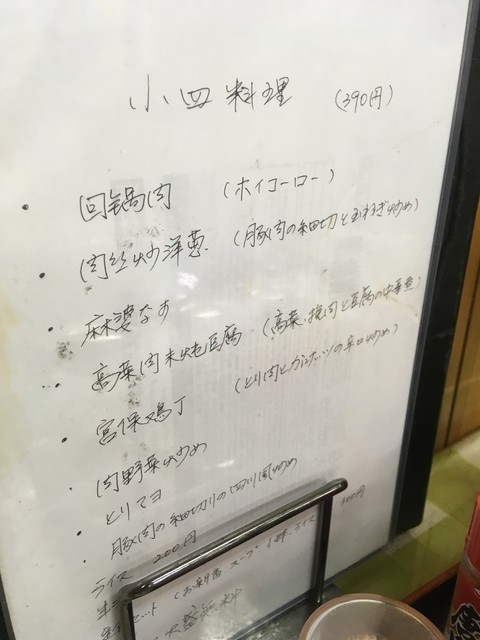 小皿料理 (390円)
・回鍋肉 (ホイコーロー)
・肉丝炒洋葱 (豚肉の細切と玉ねぎ炒め)
・麻婆なす
・高菜肉末炖豆腐 (高菜、挽肉と豆腐の中華煮)
・宮保鶏丁 (とり肉とカシューナッツの辛口炒め)
・肉野菜炒め
・とりマヨ
・豚肉の細切りの四川風炒め
ライス 200円
セット (お新香 スープ 小鉢、ライス 300円